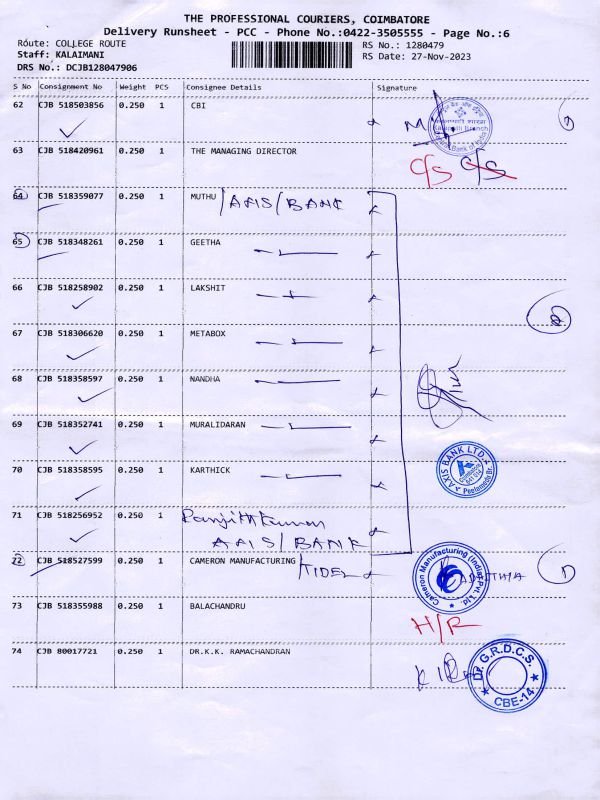 THE PROFESSIONAL COURIERS, COIMBATORE
Delivery Runsheet - PCC - Phone No.:0422-3505555 - Page No.:6
Route: COLLEGE ROUTE
RS No.: 1280479
Staff: KALAIMANI
RS Date: 27-Nov-2023
DRS No.: DCJB128047906
S No Consignment No Weight PCS Consignee Details Signature
62 CJB 518503856 0.250 1 CBI
63 CJB 518420961 0.250 1 THE MANAGING DIRECTOR
C/S C/S
64 CJB 518359077 0.250 1 MUTHU / AXIS / BANK
65 CJB 518348261 0.250 1 GEETHA
66 CJB 518258902 0.250 1 LAKSHIT
67 CJB 518306620 0.250 1 METABOX
68 CJB 518358597 0.250 1 NANDHA
69 CJB 518352741 0.250 1 MURALIDARAN
70 CJB 518358595 0.250 1 KARTHICK
AXIS BANK LTD. Peelamedu Br.
71 CJB 518256952 0.250 1 Ranjithkumar
AXIS / BANK
72 CJB 518527599 0.250 1 CAMERON MANUFACTURING / TIDEL
Cameron Manufacturing (India) Pvt. Ltd.
73 CJB 518355988 0.250 1 BALACHANDRU
H/R
74 CJB 80017721 0.250 1 DR.K.K. RAMACHANDRAN
Dr. G.R.D.C.S. CBE-14